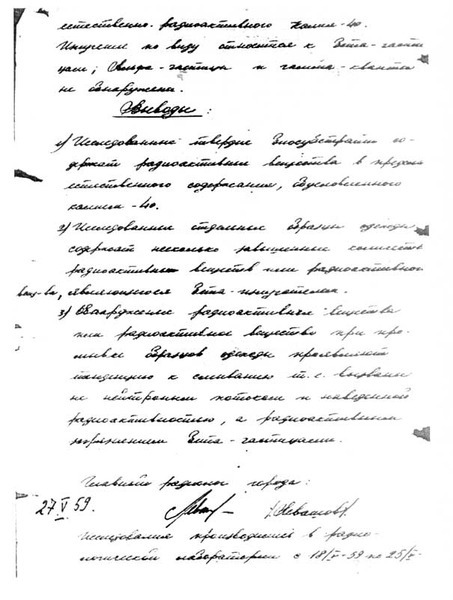 естественно-радиоактивного Калия-40.
Излучение по виду относится к Бета-части
цам; Альфа-частицы и гамма-кванты
не обнаружены.
Выводы:
1) Исследованные твердые биосубстраты со-
держат радиоактивные вещества в пределах
естественного содержания, обусловленного
калием-40.
2) Исследованные отдельные образцы одежды
содержат несколько завышенные количества
радиоактивных веществ или радиоактивного
вещ-ва, являющегося Бета-излучателем.
3) Обнаруженные радиоактивные вещества
или радиоактивное вещество при про-
мывке образцов одежды проявляют
тенденцию к смыванию т.е. вызваны
не нейтронным потоком и наведенной
радиоактивностью, а радиоактивным
загрязнением Бета-частицами.
Главный радиолог города:
27/V 59. Левашов/
Исследования производились в радио-
логической лаборатории с 18/V-59 по 25/V-